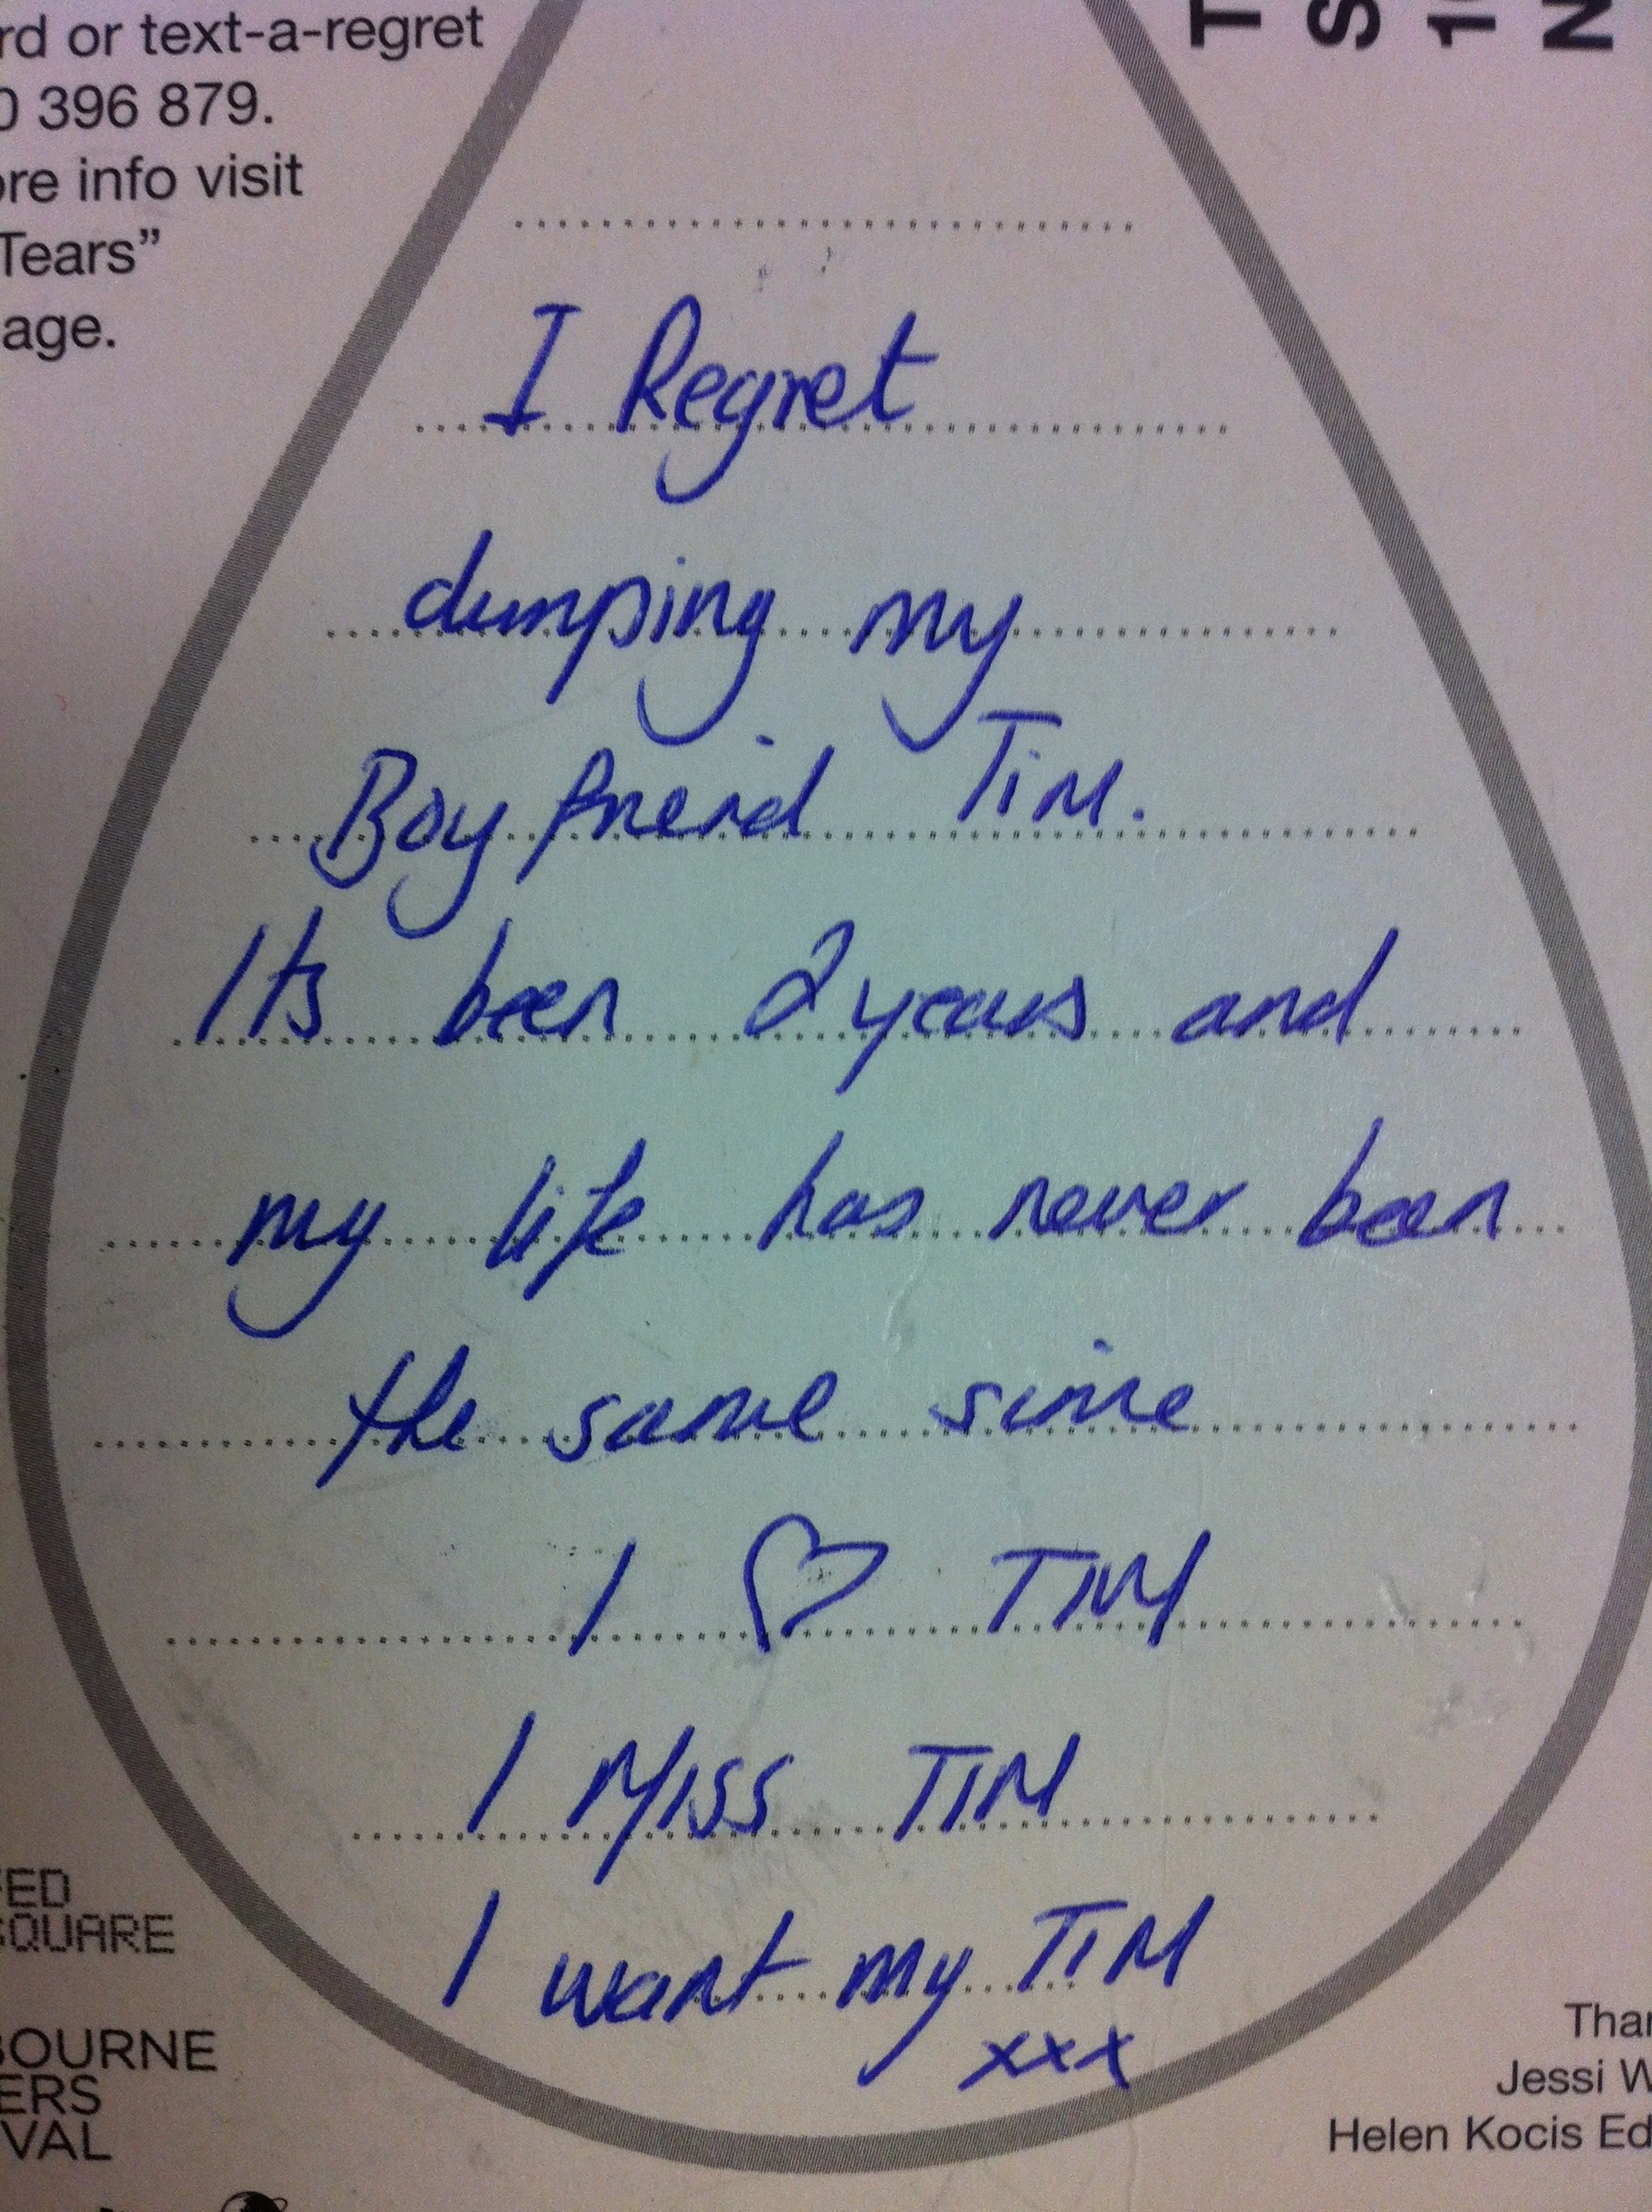 rd or text-a-regret
0 396 879.
ore info visit
Tears”
age.
T
S
N
I Regret
dumping my
Boyfriend TiM.
Its been 2 years and
my life has never been
the same since
I ♡ TIM
I MISS TIM
I want my TIM
xxx
FED
SQUARE
BOURNE
ERS
VAL
Than
Jessi W
Helen Kocis Ed